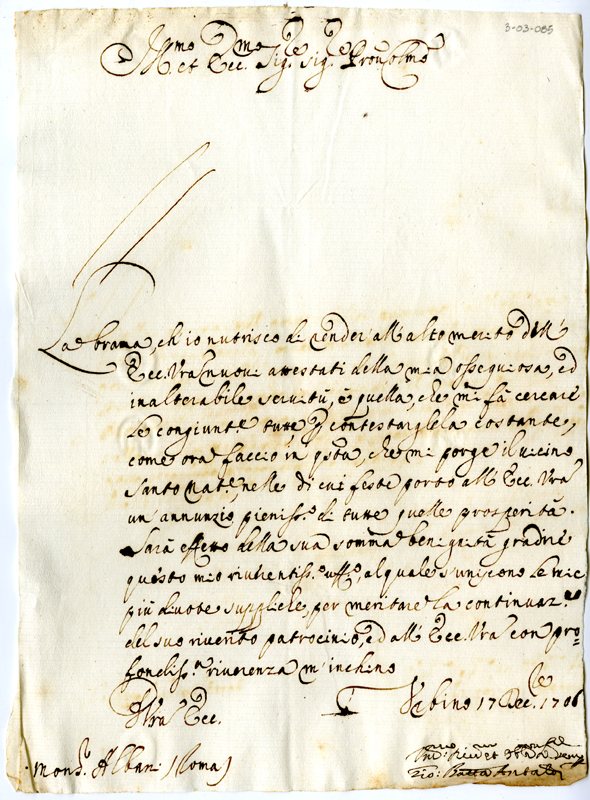 3-03-085
Ill.mo et Ecc.mo Sig.re Sig.re Pron Colmo
La brama, ch'io nutrisco di render all'alto merito dell'
Ecc. Vra nuovi attestati della mia ossequiosa, ed
inalterabile servitù, è quella, che mi fà cercare
le congiunture tutte p contestargliela costante,
come ora faccio in qsta, che mi porge il vicino
Santo Nat.e, nelle di cui feste porto all'Ecc. Vra
un'annunzio pieniss.o di tutte quelle prosperità.
Sarà effetto della sua somma benignità gradire
questo mio riverentiss.o uff.o, al quale s'uniscono le mie
più divote suppliche, per meritare la continuaz.ne
del suo riverito patrocinio, ed all'Ecc. Vra con pro=
fondiss.a riverenza m'inchino
Di Vra Ecc.
Urbino 17 Dec.re 1706
Mons.r Albani (Roma)
Gio: Batta Antaldi